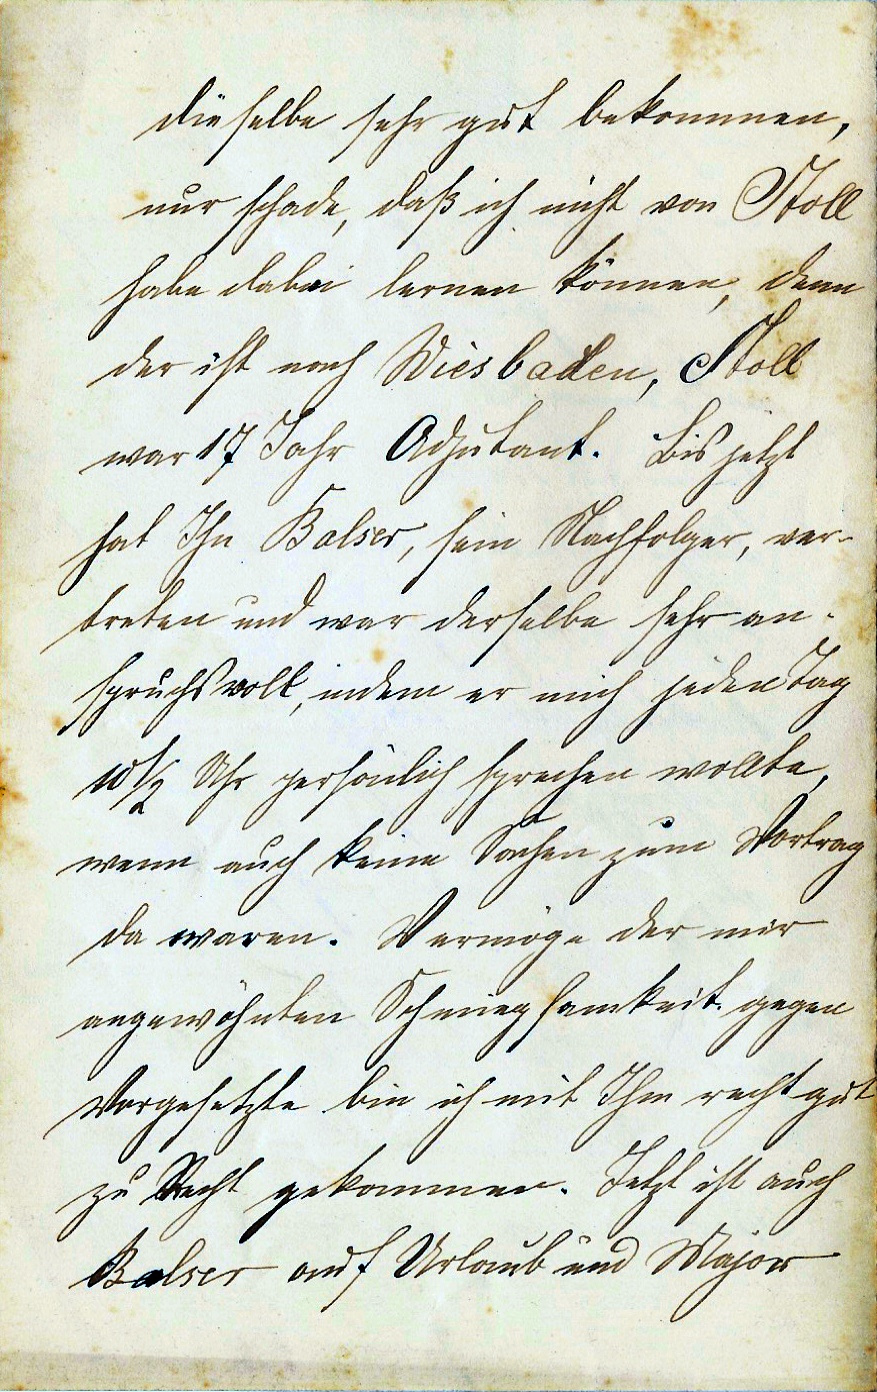 dieselbe sehr gut bekommen,
nur schade, daß ich nicht von Stoll
habe dabei lernen können, denn
der ist nach Wiesbaden, Stoll
war 17 Jahr Adjutant. Bis jetzt
hat Ihn Balser, sein Nachfolger, ver-
treten und war derselbe sehr an-
spruchsvoll, indem er mich jeden Tag
10 1/2 Uhr persönlich sprechen wollte,
wenn auch keine Sachen zum Vortrag
da waren. Vermöge der mir
angewöhnten Schmiegsamkeit gegen
Vorgesetzte bin ich mit Ihm recht gut
zu Recht gekommen. Jetzt ist auch
Balser auf Urlaub und Major